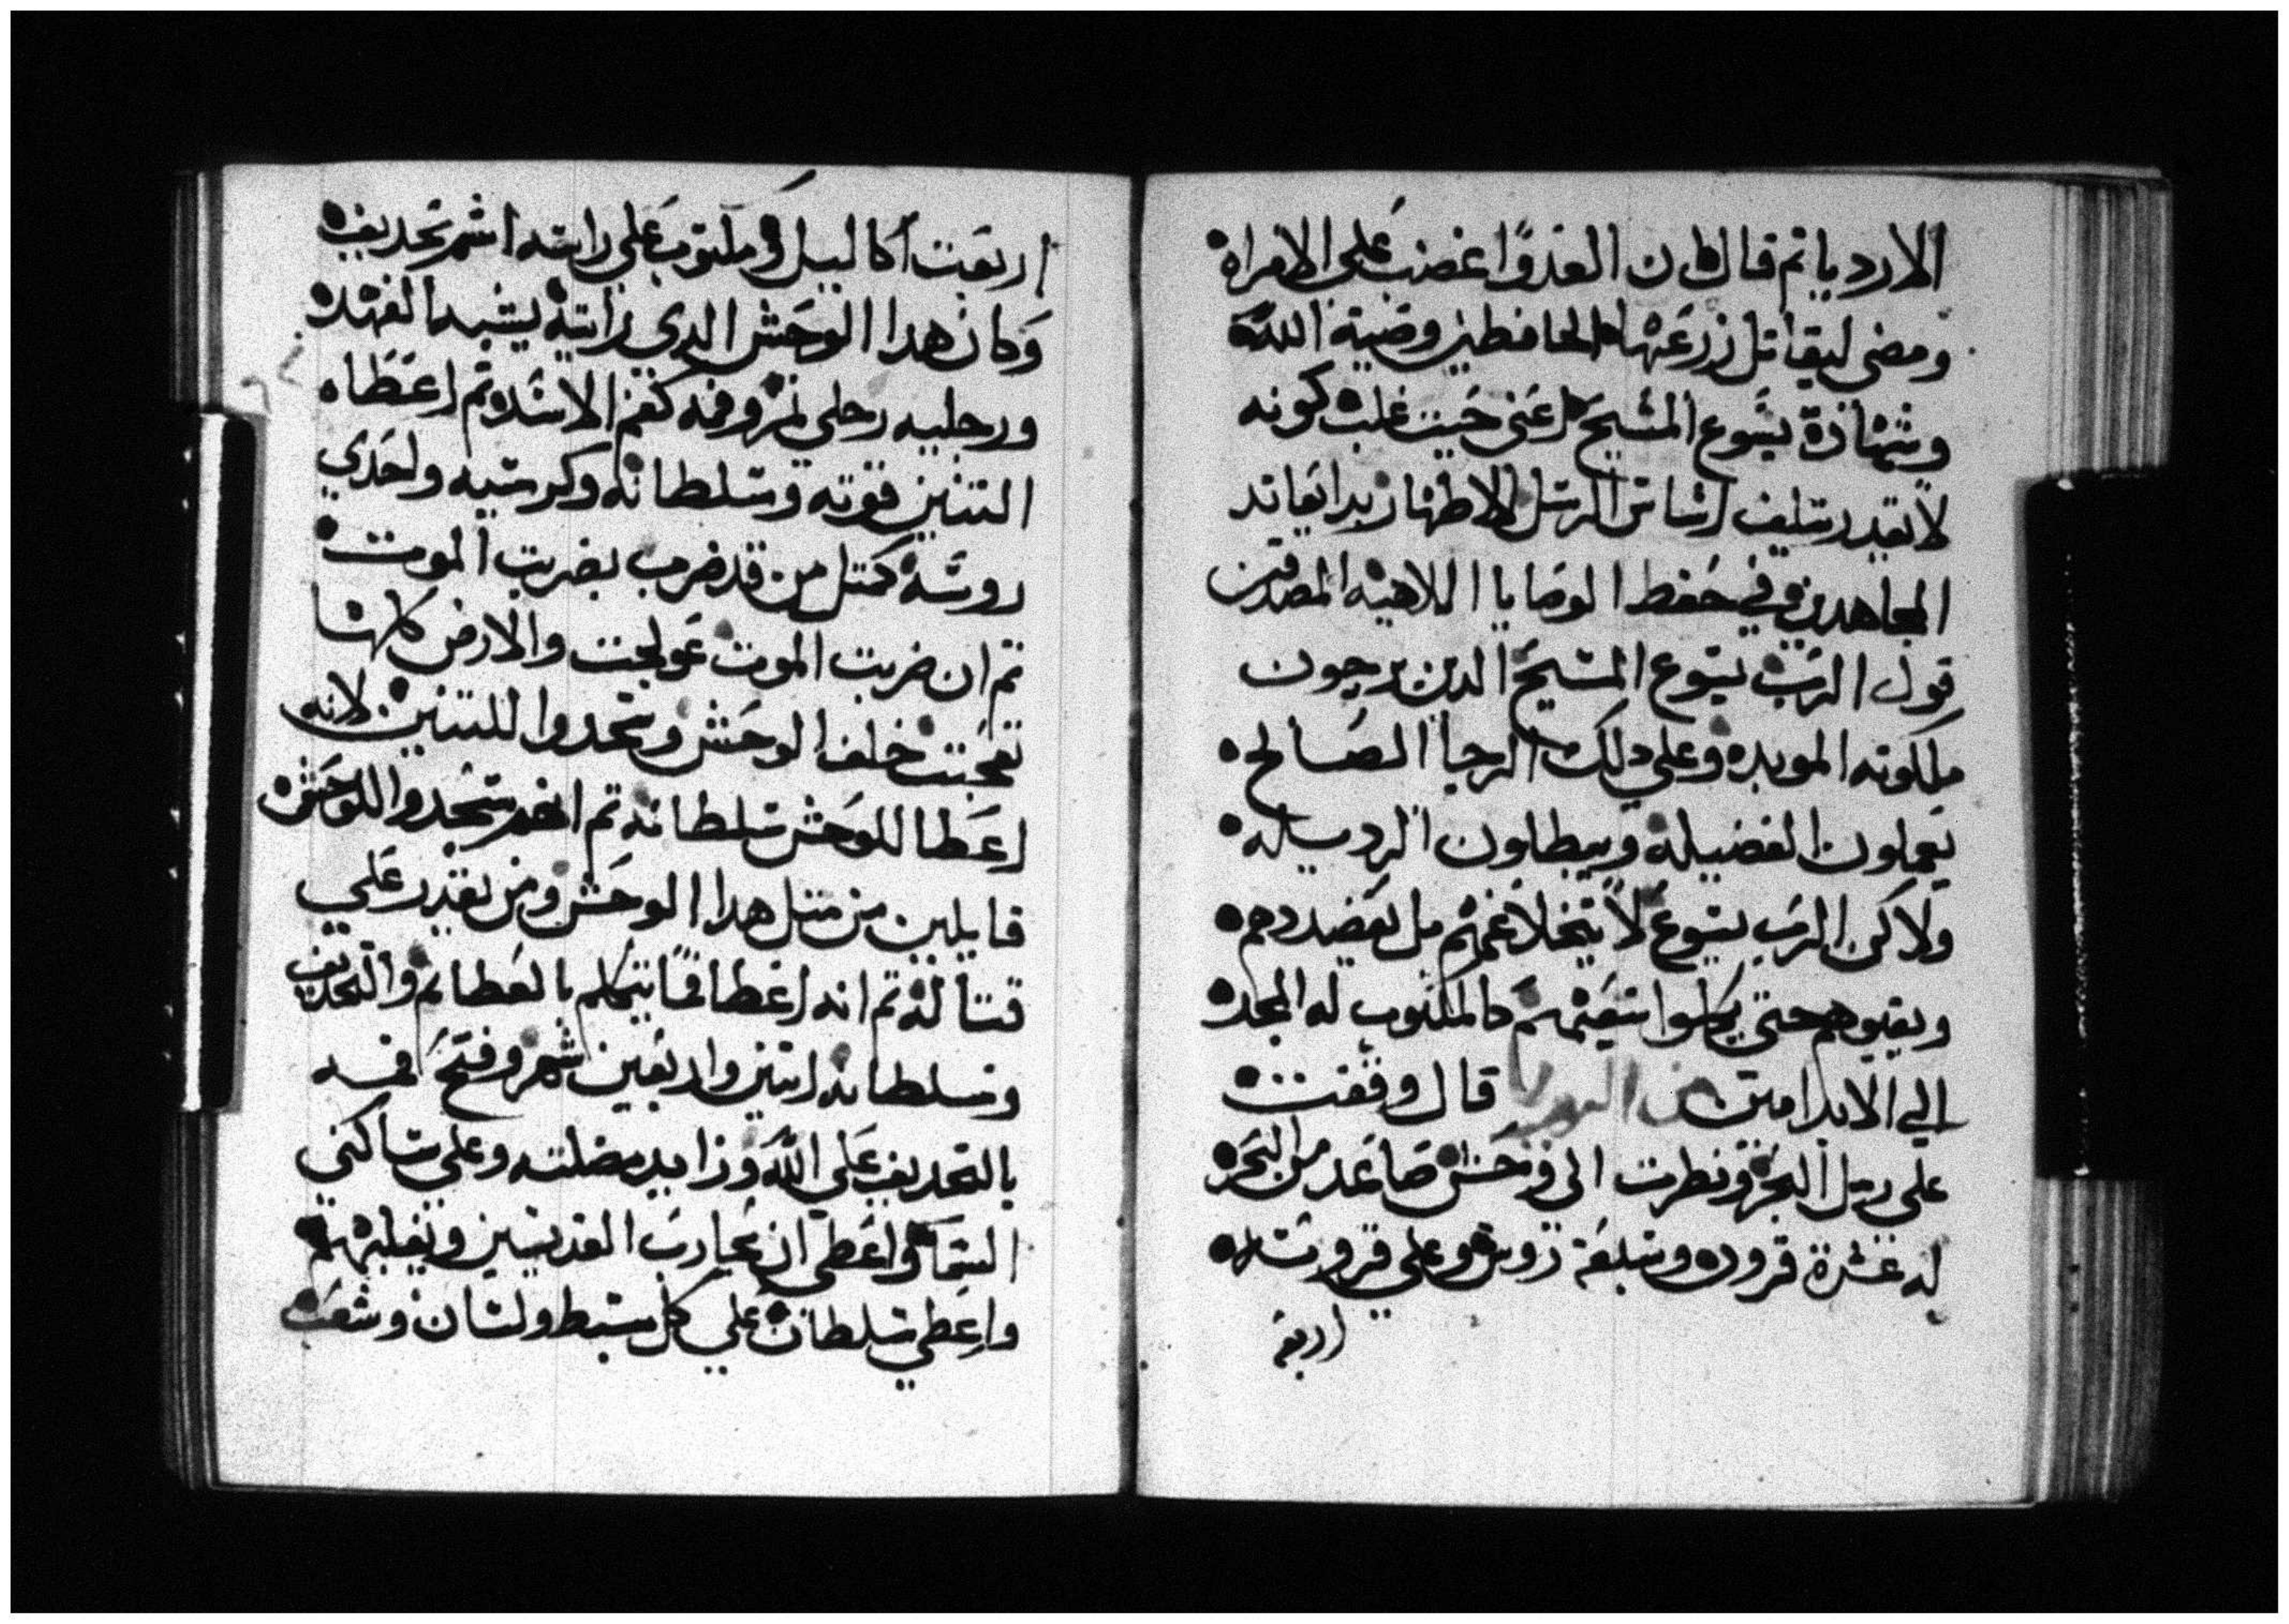 الارديا تم قال كان العدوا غضب على الامراه
ومضى ليقاتل زرعها الحافطين وصية الله
وشهادة يسوع المسيح اعنى حيت غلب كونه
لا يقدر الرسل الاطهار بدا يعاند
المجاهدين في حفط الوصايا اللاهيه المصدقين
قول الرب يسوع المسيح الدين يرجون
ملكوته الموبده وعلي دلك الرجا الصالح
يعملون الفضيله ويبطلون الرديله
ولاكن الرب يسوع لا يتخلا عنهم بل يعضددهم
ويقيوهم حتى يكملوا سعيهم كالمكتوب له المجد
الي الابد امين قال وقفت
على رمل البحر ونطرت الى وحش صاعد من البحر
له عشرة قرون وسبعة روس وعلي قرونه
اربعة
اربعت اكاليل ومكتوب علي راسه اسم تجديف
وكان هدا الوحش الدي رايته يشبه الفهد
ورجليه رجلي نمر وفمه كفم الاسد تم اعطاه
التنين قوته وسلطانه وكرسيه واحدي
روسه كمتل من قد ضرب بضربت الموت
تم ان ضربت الموت عولجت والارض كلها
تعجبت خلف الوحش وسجدوا للتنين لانه
اعطا للوحش سلطانه تم انهم سجدوا للوحش
قايلين من متل هدا الوحش ومن يقدر علي
قتاله تم انه اعطا فما يتكلم بالعطايم والتجديف
وسلطانه اتنين واربعين شهر وفتح فمه
بالتجديف علي الله وزايد مضلته وعلي ساكني
السما واعطي ان يحارب القديسين ويغلبهم
واعطي سلطان علي كل سبط ولسان وشعب